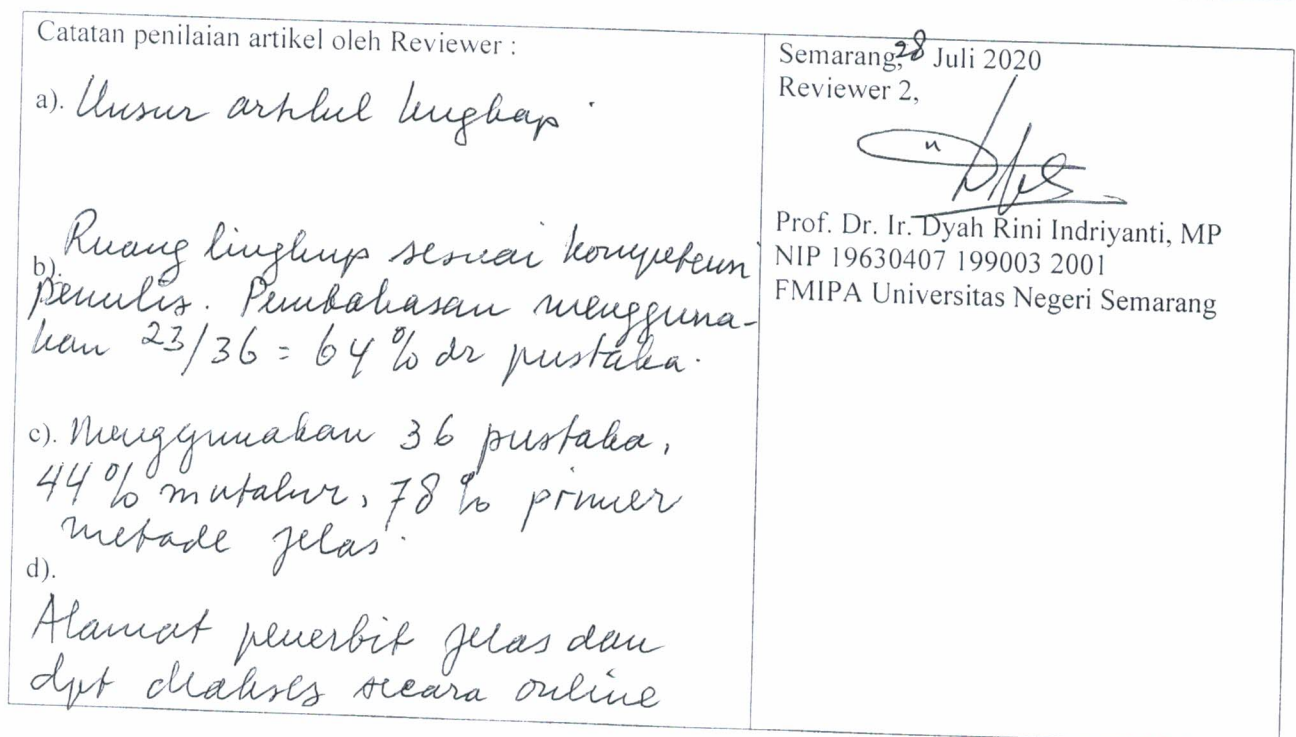 Catatan penilaian artikel oleh Reviewer :
a). Unsur artikel lengkap.
b). Ruang lingkup sesuai kompetensi
penulis. Pembahasan mengguna-
kan 23/36 = 64% dr pustaka.
c). Menggunakan 36 pustaka,
44% mutakhir, 78% primer
metode jelas.
d).
Alamat penerbit jelas dan
dpt diakses secara online
Semarang, 28 Juli 2020
Reviewer 2,
Prof. Dr. Ir. Dyah Rini Indriyanti, MP
NIP 19630407 199003 2001
FMIPA Universitas Negeri Semarang